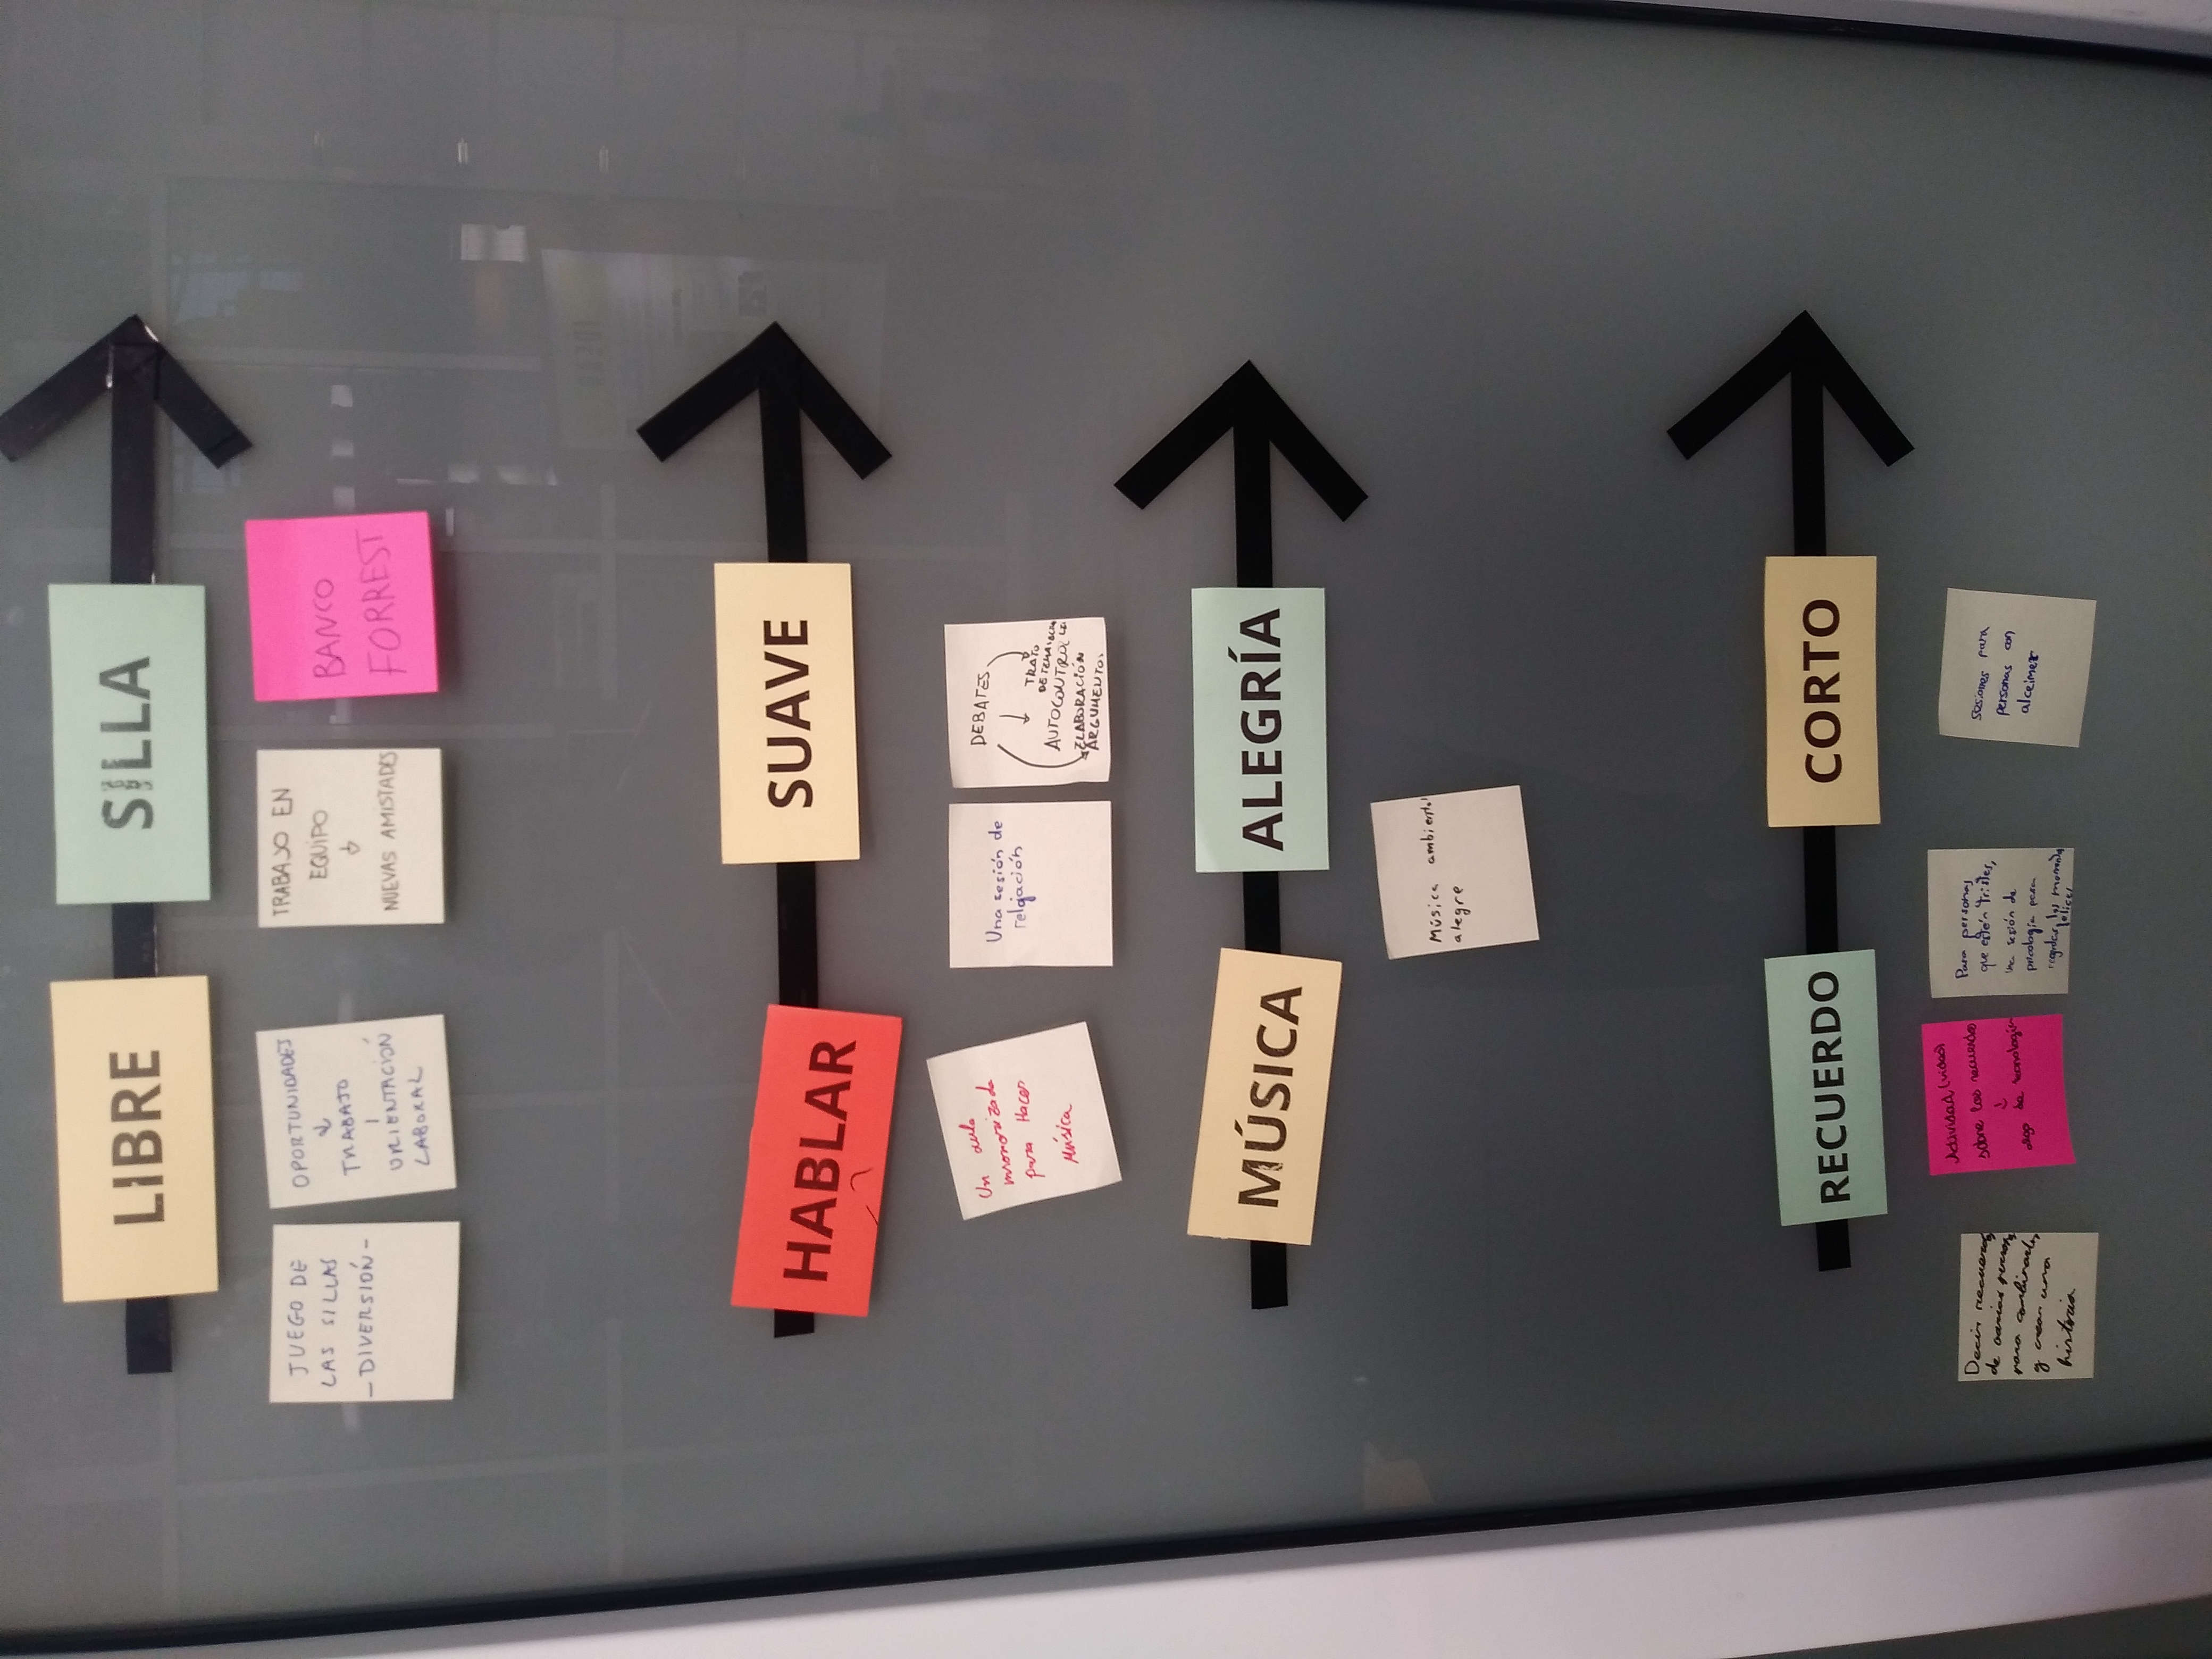 LIBRE
SILLA
JUEGO DE
LAS SILLAS
- DIVERSIÓN -
OPORTUNIDADES
TRABAJO
ORIENTACIÓN
LABORAL
TRABAJO EN
EQUIPO
NUEVAS AMISTADES
BANCO
FORREST
HABLAR
SUAVE
Un aula
para Hacer
Música
Una sesión de
relajación
DEBATES
TRATO
AUTOCONTROL
ELABORACIÓN
ARGUMENTOS
MÚSICA
ALEGRÍA
Música ambiental
alegre
RECUERDO
CORTO
Decir recuerdos
de varias personas
para combinarlos
y crear una
historia
Actividad (video)
sobre los recuerdos
algo de tecnología
Para personas
que estén tristes,
una sesión de
psicología para
recordar los momentos
felices
sesiones para
personas con
alceimer